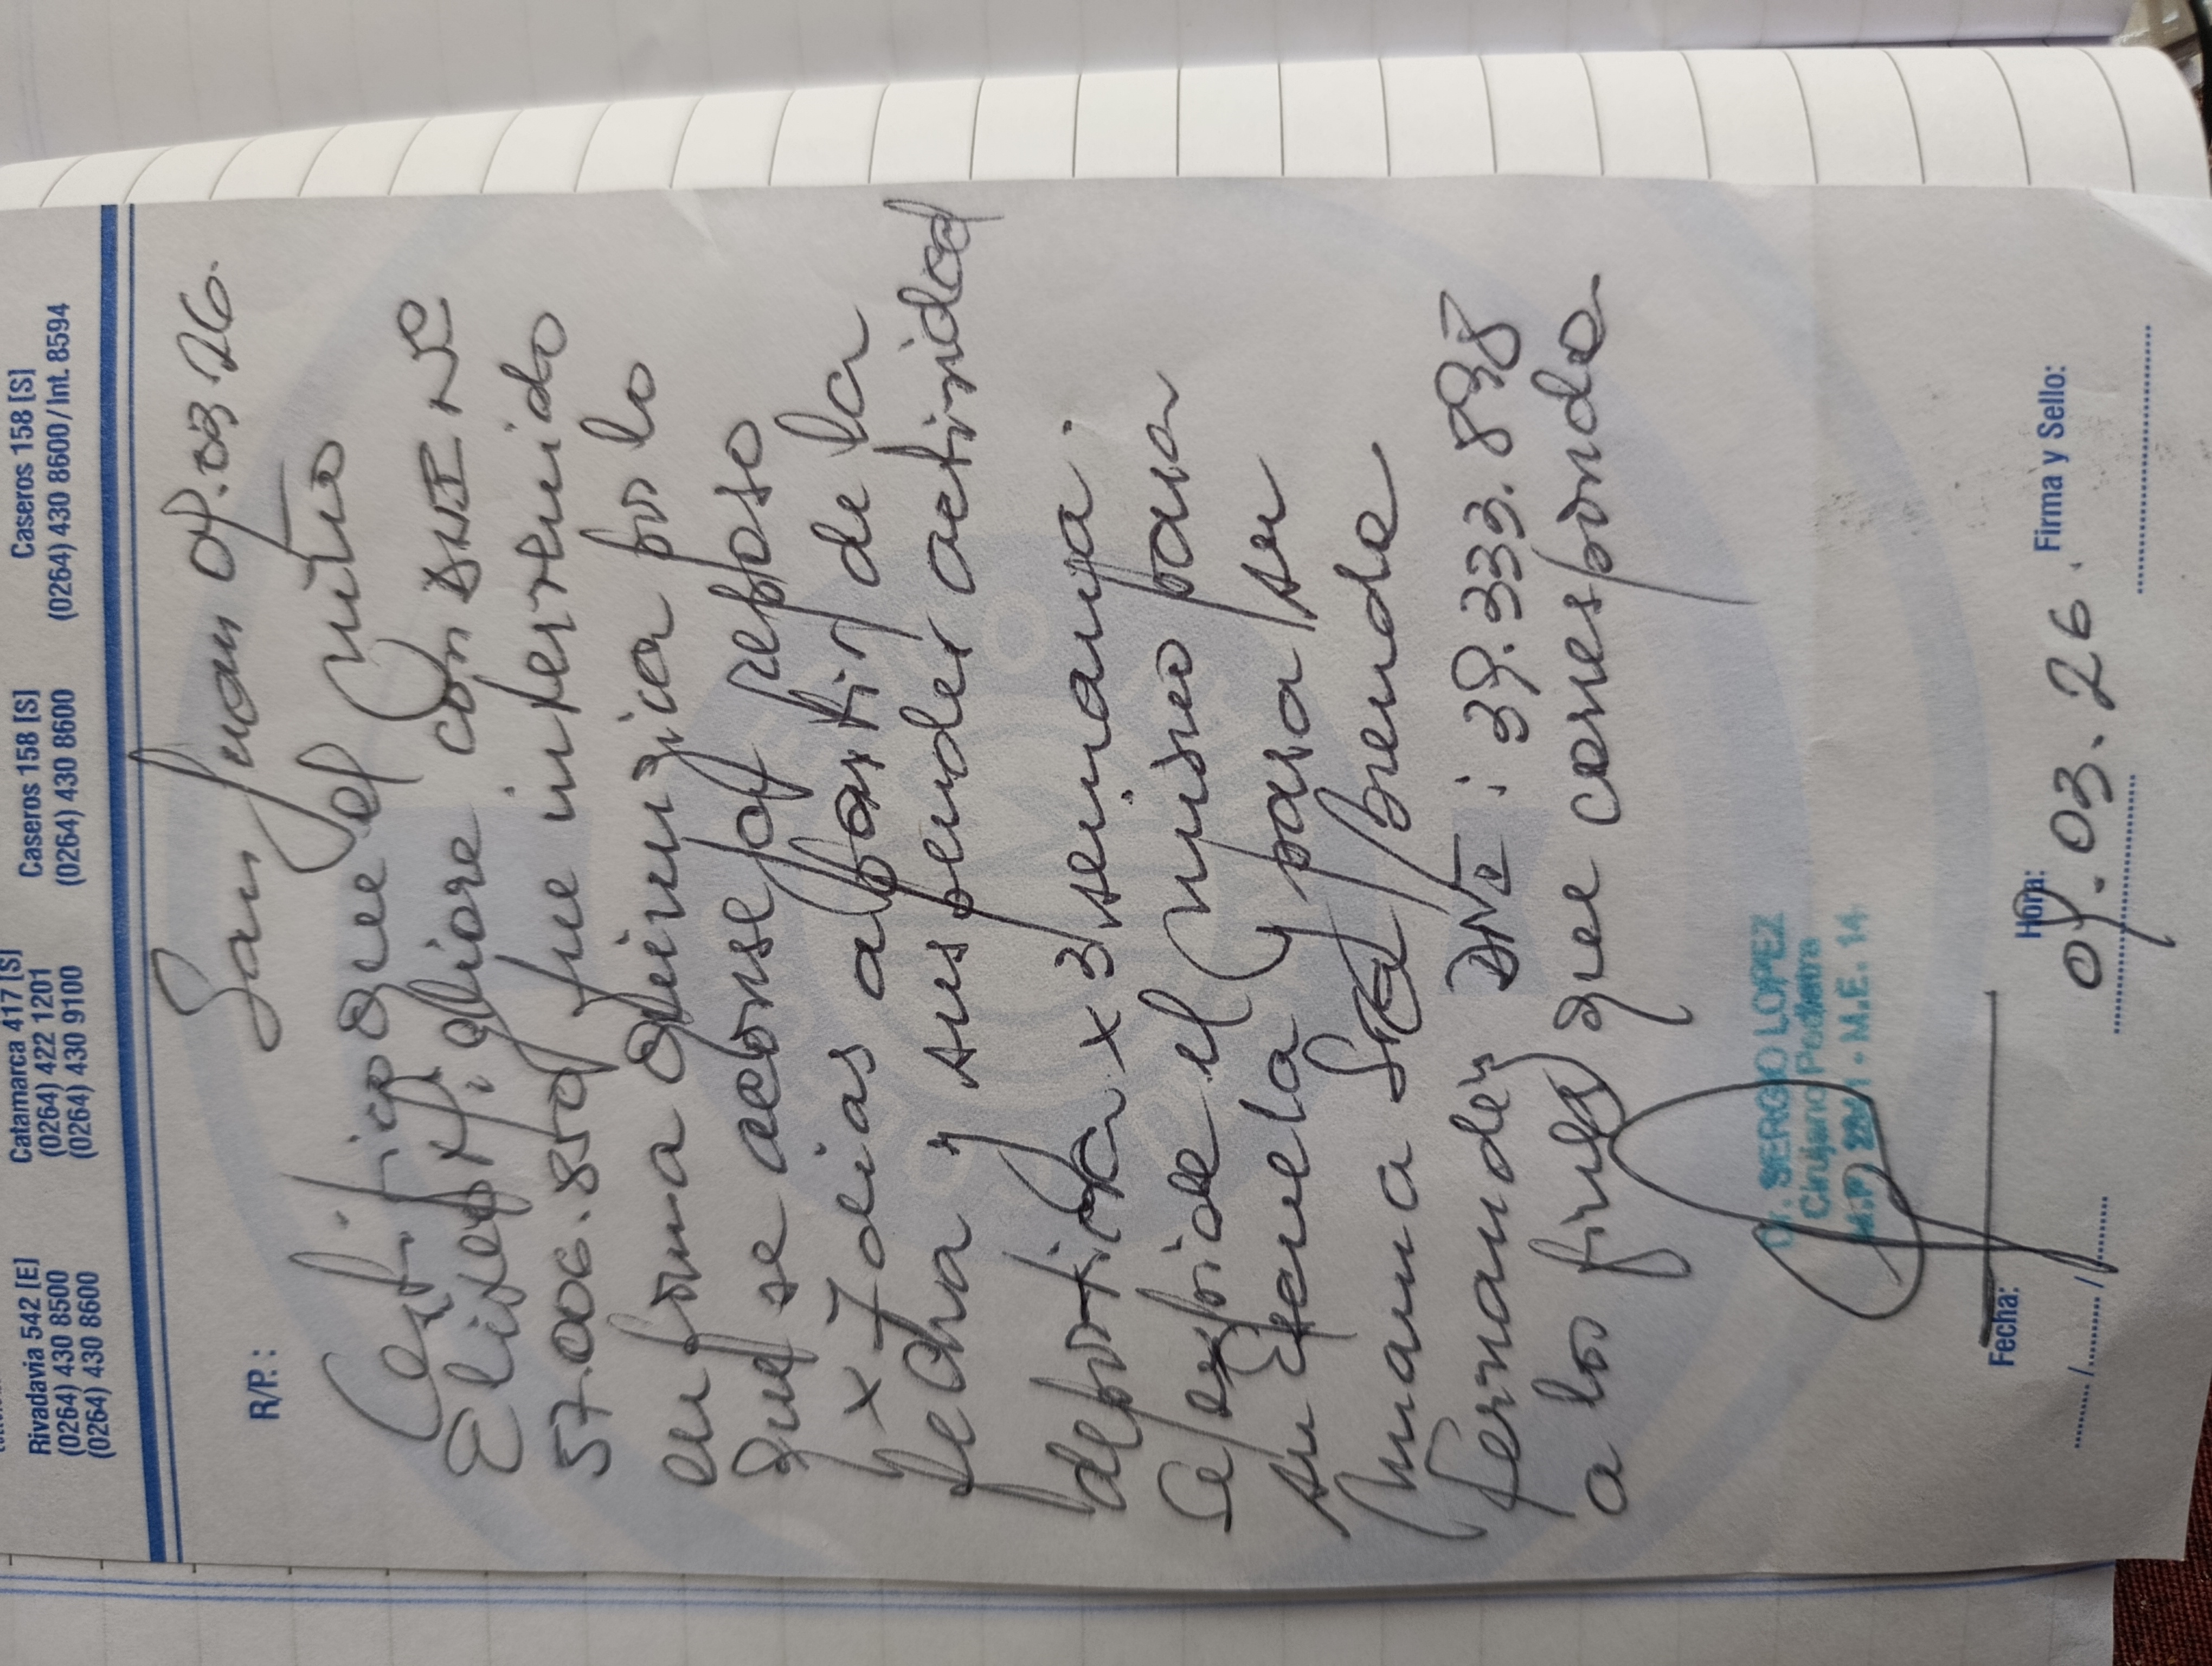 Rivadavia 542 [E]
(0264) 430 8500
(0264) 430 8600
Catamarca 417 [S]
(0264) 422 1201
(0264) 430 9100
Caseros 158 [S]
(0264) 430 8600
Caseros 158 [S]
(0264) 430 8600/Int. 8594
R/P.:
San Juan 09.03.26.
Certifico que el niño
con DNI Nº
57.006.850 fue intervenido
en forma quirurgica por lo
que se aconseja reposo
x 7 dias a partir de la
fecha y suspender actividad
deportiva x 3 semanas.
Se expide el mismo para
su Escuela y para su
mama Sra Brenda
Fernandez DNI: 39.333.898
a los fines que corresponda
Dr. SERGIO LOPEZ
Cirujano Pediatra
M.P. M.E. 14
Fecha: Hora: Firma y Sello:
09.03.26.